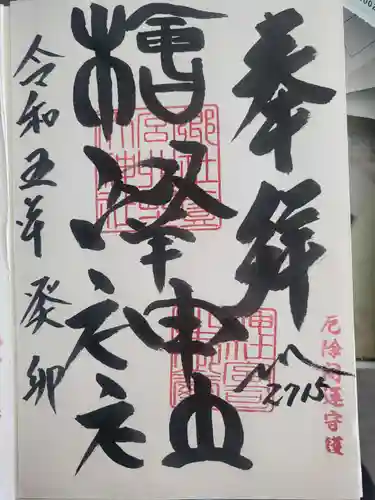 奉拜
檜峯神社
令和五年 癸卯
厄除開運守護
2715